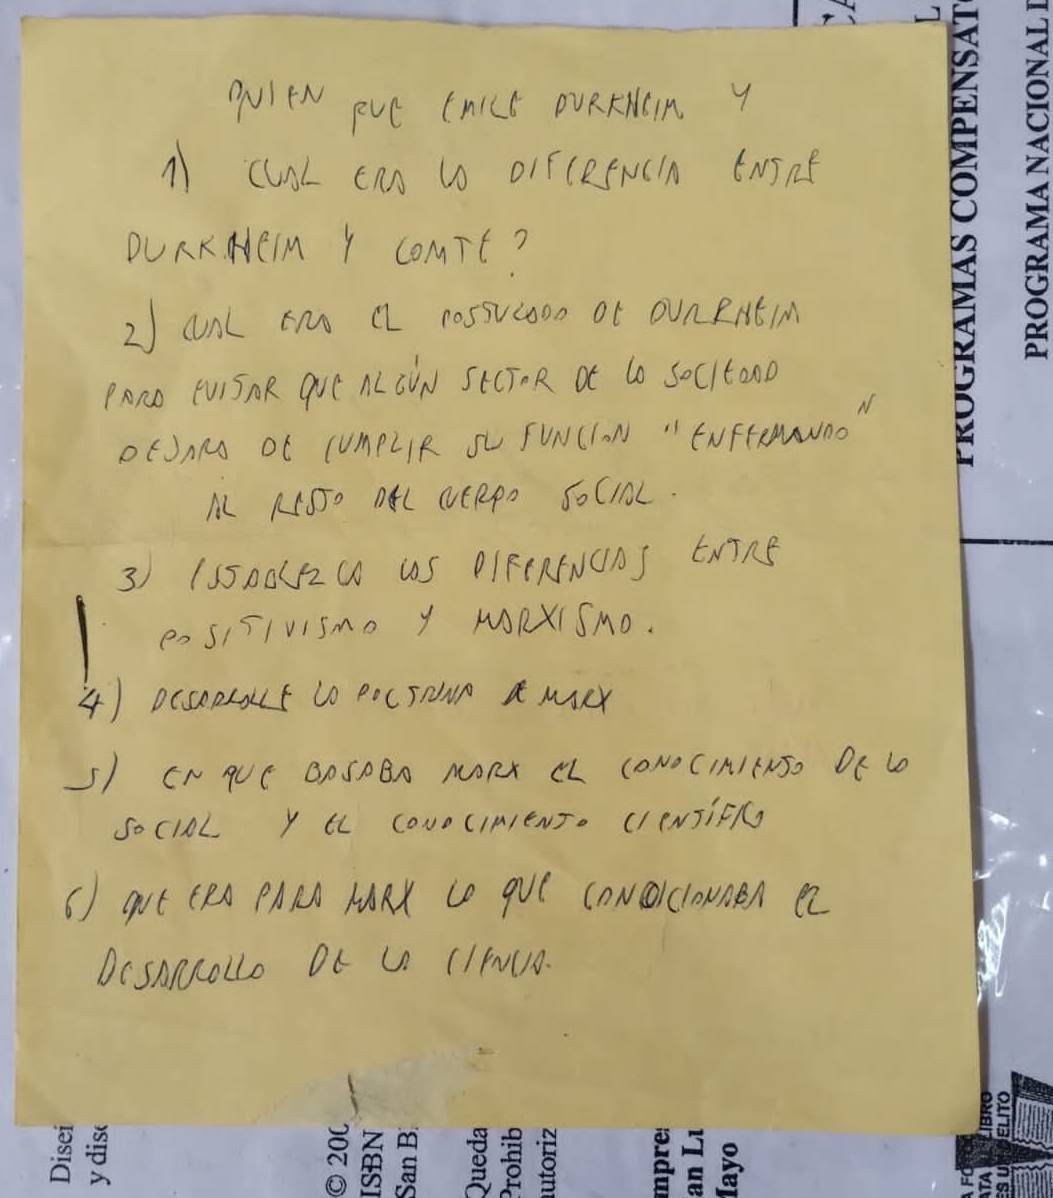 QUIEN FUE EMILE DURKHEIM Y
1) CUAL ERA LA DIFERENCIA ENTRE
DURKHEIM Y COMTE?
2) CUAL ERA EL POSTULADO DE DURKHEIM
PARA EVITAR QUE ALGÚN SECTOR DE LA SOCIEDAD
DEJARA DE CUMPLIR SU FUNCION "ENFERMANDO"
AL RESTO DEL CUERPO SOCIAL.
3) ESTABLEZCA LAS DIFERENCIAS ENTRE
POSITIVISMO Y MARXISMO.
4) DESARROLLE LA DOCTRINA DE MARX
5) EN QUE BASABA MARX EL CONOCIMIENTO DE LO
SOCIAL Y EL CONOCIMIENTO CIENTÍFICO
6) QUE ERA PARA MARX LO QUE CONDICIONABA EL
DESARROLLO DE LA CIENCIA.
PROGRAMAS COMPENSATO
PROGRAMA NACIONAL D
Disei
y dise
© 200
ISBN
San B
Queda
Prohib
autoriz
mpre
an Lu
Mayo